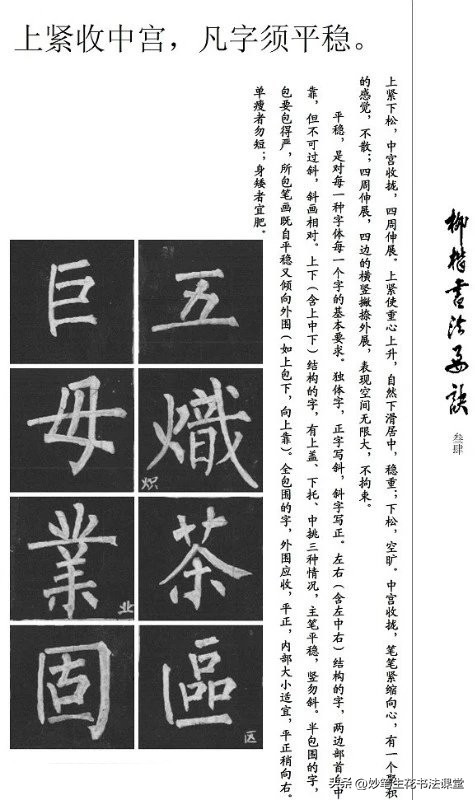 上紧收中宫，凡字须平稳。
柳楷書法要訣
叁肆
上紧下松，中宫收拢，四周伸展。上紧使重心上升，自然下滑居中，稳重；下松，空旷。中宫收拢，笔笔紧缩向心，有一个积
的感觉，不散；四周伸展，四边的横竖撇捺外展，表现空间无限大，不拘束。
平稳，是对每一种字体每一个字的基本要求。独体字，正字写斜，斜字写正。左右（含左中右）结构的字，两边部首向中
靠，但不可过斜，斜画相对。上下（含上中下）结构的字，有上盖、下托、中挑三种情况，主笔平稳，竖勿斜。半包围的字，
包要包得严，所包笔画既自平稳又倾向外围（如上包下，向上靠）。全包围的字，外围应收，平正，内部大小适宜，平正稍向右。
单瘦者勿短；身矮者宜肥。
五
熾
炽
茶
區
区
巨
毋
業
业
固
头条 @妙笔生花书法课堂